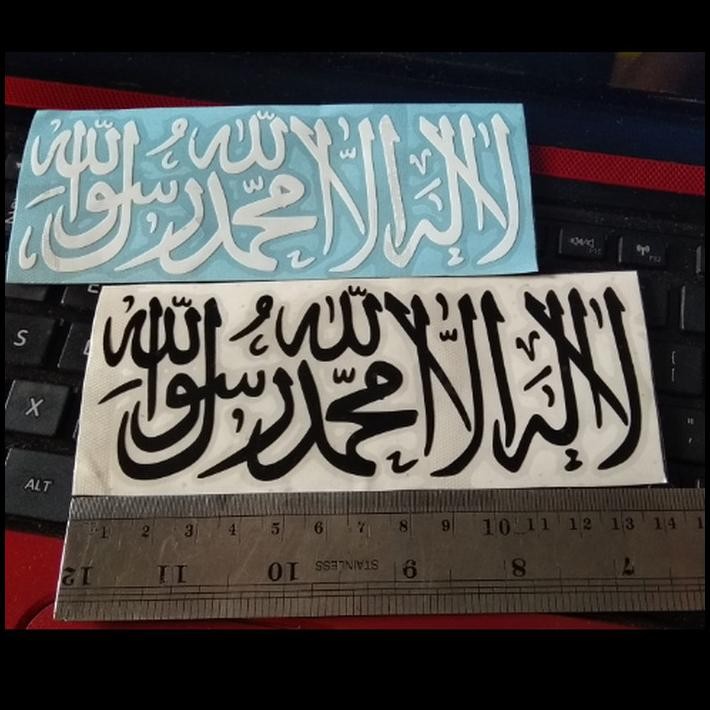 لا إله إلا الله محمد رسول الله
لا إله إلا الله محمد رسول الله
S
X
ALT
1 2 3 4 5 6 7 8 9 10 11 12 13 14
12 11 10 STAINLESS 9 8 7